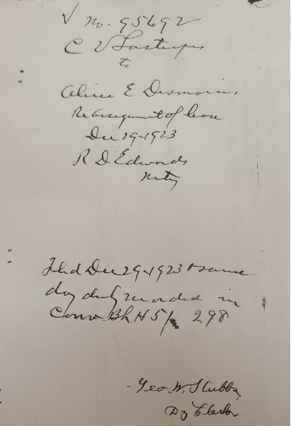 ✓ No. 95692
C V
to
Alice E Desmarais
Re Assignment of lease
Dec 29-1923
R D Edwards
Noty
Filed Dec 29-1923 & same
day duly recorded in
Conv. Bk H 5/ 298
Geo. W. Stubbs
Dy Clerk